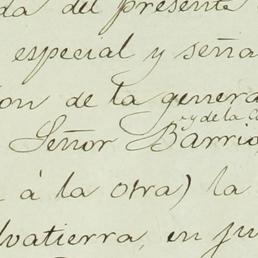 da del presente
especial y seña
ion de la genera
y de la C
Señor Barrio
á la otra) la
lvatierra, en ju